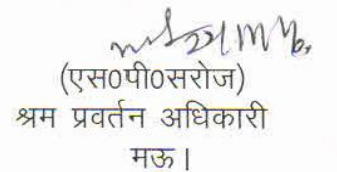 (एस0पी0सरोज)
श्रम प्रवर्तन अधिकारी
मऊ।